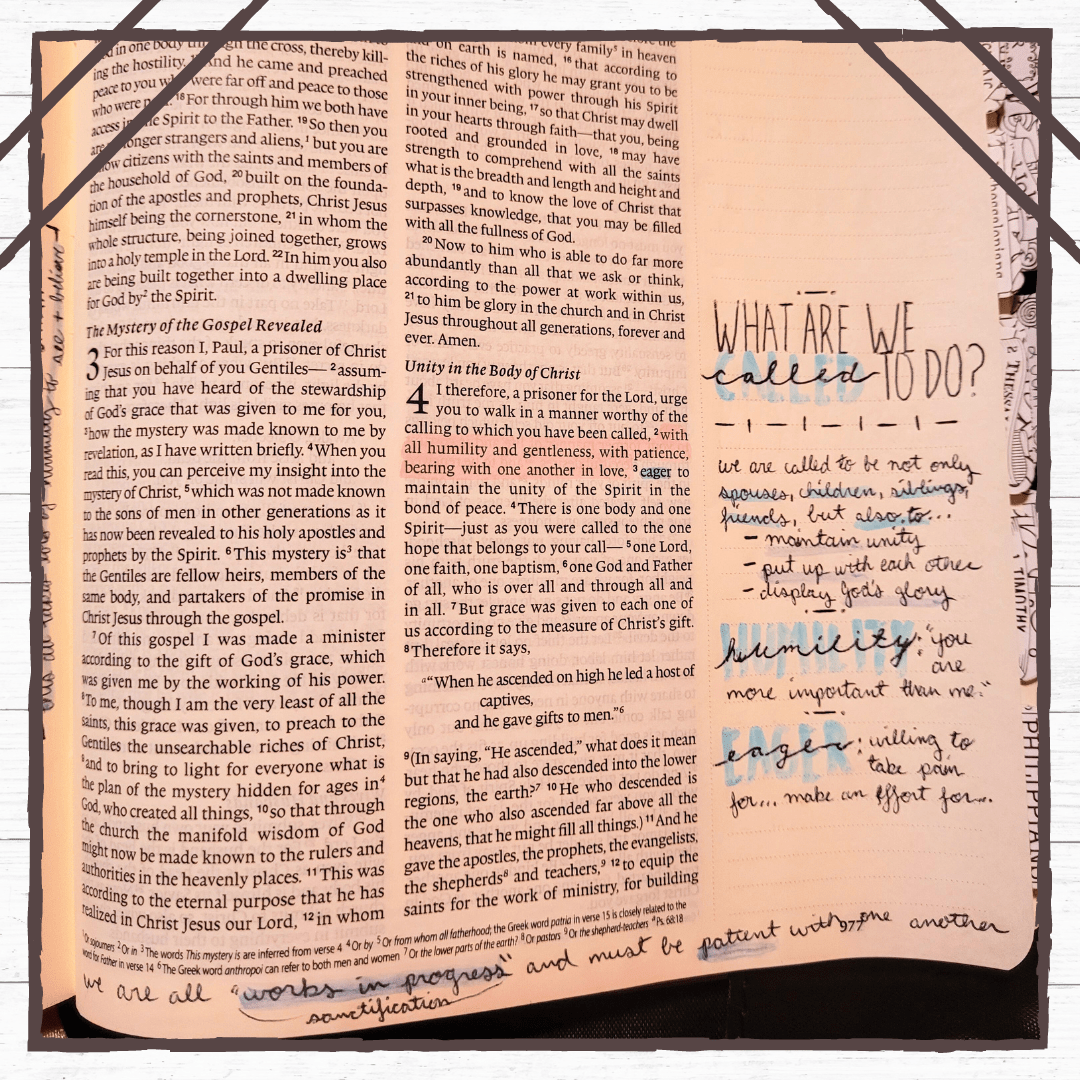 in one body through the cross, thereby kill-
ing the hostility. And he came and preached
peace to you who were far off and peace to those
who were 18 For through him we both have
access in Spirit to the Father. 19 So then you
are longer strangers and aliens,1 but you are
citizens with the saints and members of
the household of God, 20 built on the founda-
tion of the apostles and prophets, Christ Jesus
himself being the cornerstone, 21 in whom the
whole structure, being joined together, grows
into a holy temple in the Lord. 22 In him you also
are being built together into a dwelling place
for God by2 the Spirit.
The Mystery of the Gospel Revealed
3 For this reason I, Paul, a prisoner of Christ
Jesus on behalf of you Gentiles— 2 assum-
ing that you have heard of the stewardship
of God's grace that was given to me for you,
3 how the mystery was made known to me by
revelation, as I have written briefly. 4 When you
read this, you can perceive my insight into the
mystery of Christ, 5 which was not made known
to the sons of men in other generations as it
has now been revealed to his holy apostles and
prophets by the Spirit. 6 This mystery is3 that
the Gentiles are fellow heirs, members of the
same body, and partakers of the promise in
Christ Jesus through the gospel.
7 Of this gospel I was made a minister
according to the gift of God's grace, which
was given me by the working of his power.
8 To me, though I am the very least of all the
saints, this grace was given, to preach to the
Gentiles the unsearchable riches of Christ,
9 and to bring to light for everyone what is
the plan of the mystery hidden for ages in4
God, who created all things, 10 so that through
the church the manifold wisdom of God
might now be made known to the rulers and
authorities in the heavenly places. 11 This was
according to the eternal purpose that he has
realized in Christ Jesus our Lord, 12 in whom
on earth is named, 16 that according to
every family5 in heaven
the riches of his glory he may grant you to be
strengthened with power through his Spirit
in your inner being, 17 so that Christ may dwell
in your hearts through faith—that you, being
rooted and grounded in love, 18 may have
strength to comprehend with all the saints
what is the breadth and length and height and
depth, 19 and to know the love of Christ that
surpasses knowledge, that you may be filled
with all the fullness of God.
20 Now to him who is able to do far more
abundantly than all that we ask or think,
according to the power at work within us,
21 to him be glory in the church and in Christ
Jesus throughout all generations, forever and
ever. Amen.
Unity in the Body of Christ
4 I therefore, a prisoner for the Lord, urge
you to walk in a manner worthy of the
calling to which you have been called, 2 with
all humility and gentleness, with patience,
bearing with one another in love, 3 eager to
maintain the unity of the Spirit in the
bond of peace. 4 There is one body and one
Spirit—just as you were called to the one
hope that belongs to your call— 5 one Lord,
one faith, one baptism, 6 one God and Father
of all, who is over all and through all and
in all. 7 But grace was given to each one of
us according to the measure of Christ's gift.
8 Therefore it says,
"When he ascended on high he led a host of
captives,
and he gave gifts to men."6
9 (In saying, "He ascended," what does it mean
but that he had also descended into the lower
regions, the earth?7 10 He who descended is
the one who also ascended far above all the
heavens, that he might fill all things.) 11 And he
gave the apostles, the prophets, the evangelists,
the shepherds8 and teachers,9 12 to equip the
saints for the work of ministry, for building
1 Or sojourners 2 Or in 3 The words This mystery is are inferred from verse 4 4 Or by 5 Or from whom all fatherhood; the Greek word patria in verse 15 is closely related to the
word for Father in verse 14 6 The Greek word anthropoi can refer to both men and women 7 Or the lower parts of the earth? 8 Or pastors 9 Or the shepherd-teachers 4 Ps. 68:18
977
WHAT ARE WE
CALLED called TO DO?
we are called to be not only
spouses, children, siblings,
friends, but also to...
- maintain unity
- put up with each other
- display God's glory
HUMILITY humility: "you
are
more important than me."
EAGER eager: willing to
take pain
for... make an effort for...
we are all "works in progress" and must be patient with one another
sanctification
TIMOTHY
PHILIPPIANS